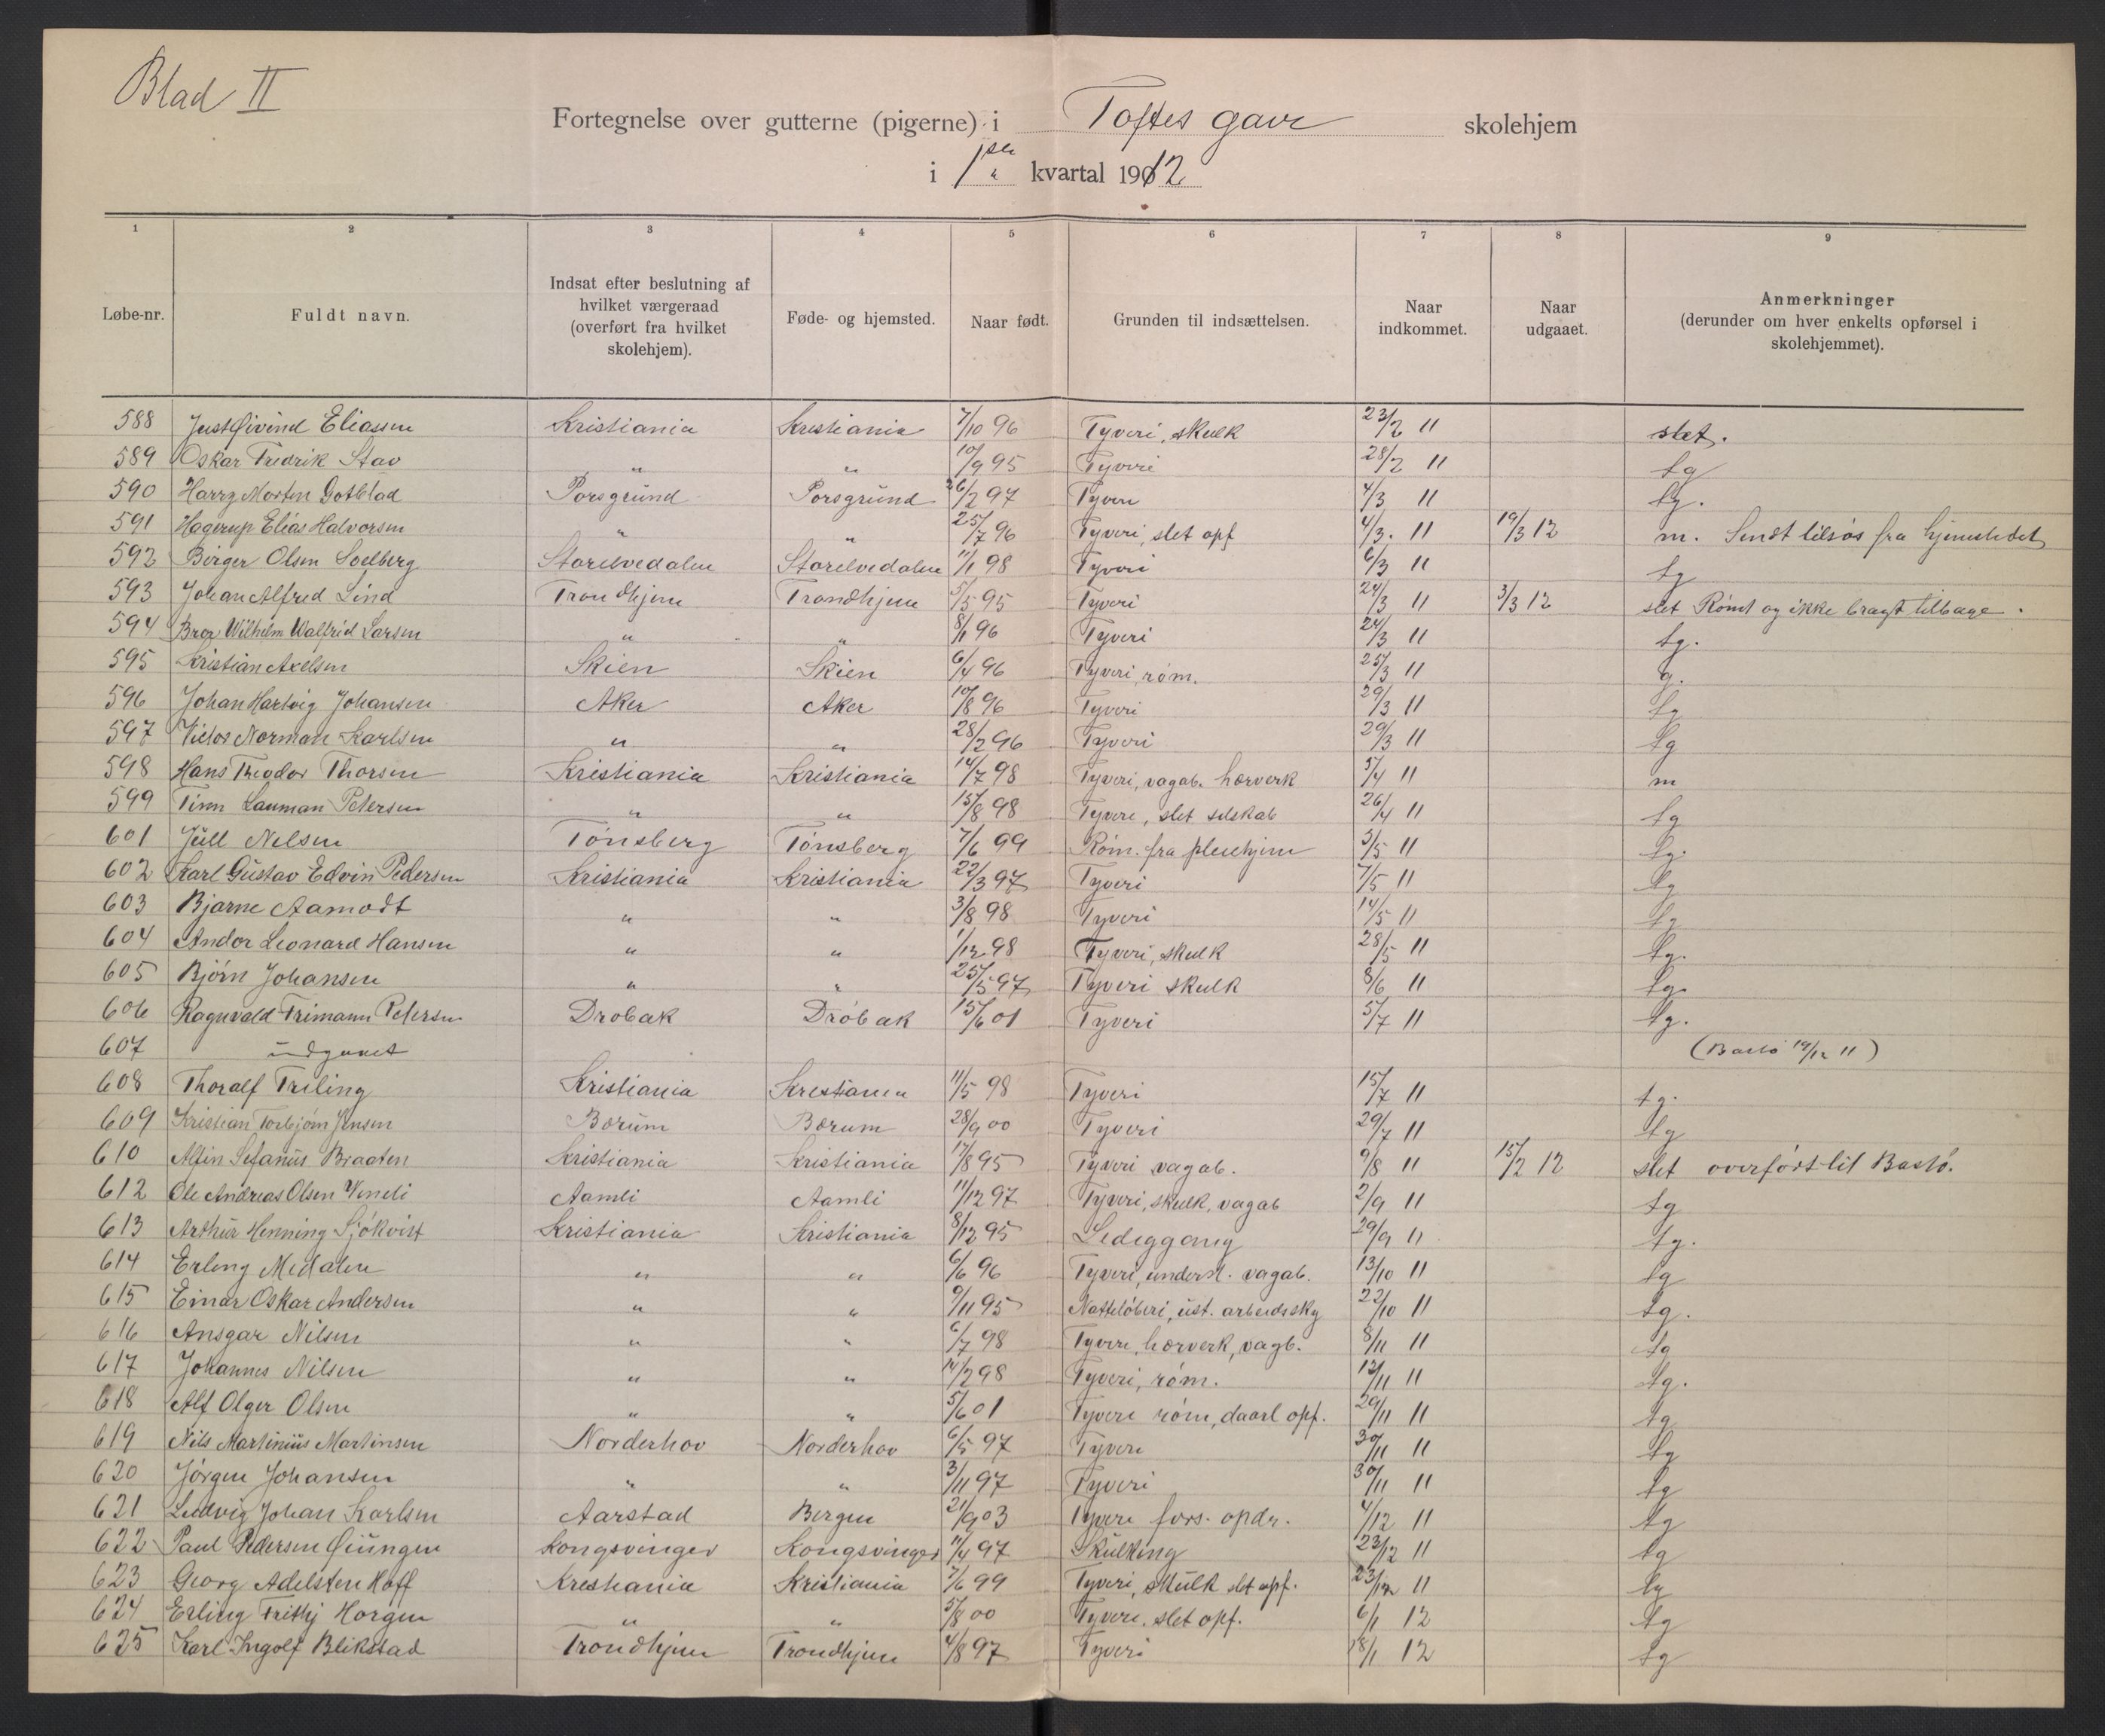 Blad II
Fortegnelse over gutterne (pigerne) i Toftes gave skolehjem
i 1ste kvartal 1912
1 2 3 4 5 6 7 8 9
Løbe-nr. Fuldt navn. Indsat efter beslutning af hvilket værgeraad (overført fra hvilket skolehjem). Føde- og hjemsted. Naar født. Grunden til indsættelsen. Naar indkommet. Naar udgaaet. Anmerkninger (derunder om hver enkelts opførsel i skolehjemmet).
588 Just Øivind Eliassen Kristiania Kristiania 7/10 96 Tyveri, skulk 23/2 11 slet.
589 Oskar Fredrik Stav " " 10/9 95 Tyveri 28/2 11 tg
590 Harry Morten Gotblad Porsgrund Porsgrund 26/2 97 Tyveri 4/3 11 tg.
591 Hagerup Elias Halvorsen " " 25/7 96 Tyveri, slet opf 4/3. 11 19/3 12 m. Sendt tilsjøs fra hjemstedet
592 Birger Olsen Soelberg Storelvedalen Storelvedalen 11/1 98 Tyveri 6/3 11 tg
593 Johan Alfred Lind Trondhjem Trondhjem 5/5 95 Tyveri 24/3 11 3/3 12 slet Rømt og ikke bragt tilbage.
594 Bror Wilhelm Walfrid Larsen " " 8/1 96 Tyveri 24/3 11 tg.
595 Kristian Axelsen Skien Skien 6/4 96 Tyveri, røm. 25/3 11 g.
596 Johan Hartvig Johansen Aker Aker 10/8 96 Tyveri 29/3 11 tg
597 Victor Norman Karlsen " " 28/2 96 Tyveri 29/3 11 tg
598 Hans Theodor Thorsen Kristiania Kristiania 14/7 98 Tyveri, vagab. hærverk 5/4 11 m
599 Finn Lauman Petersen " " 15/8 98 Tyveri, slet selskab 26/4 11 tg
601 Juell Nelsen Tønsberg Tønsberg 7/6 99 Røm. fra pleiehjem 3/5 11 tg.
602 Karl Gustav Edvin Pedersen Kristiania Kristiania 22/3 97 Tyveri 7/5 11 tg
603 Bjarne Aamodt " " 3/8 98 Tyveri 14/5 11 tg
604 Andor Leonard Hansen " " 1/12 98 Tyveri, skulk 28/5 11 tg.
605 Bjørn Johansen " " 25/5 97 Tyveri skulk 8/6 11 tg.
606 Ragnvald Frimann Petersen Drøbak Drøbak 15/6 01 Tyveri 5/7 11 tg.
607 udgaaet (Bastø 19/12 11)
608 Thoralf Friling Kristiania Kristiania 11/5 98 Tyveri 15/7 11 tg.
609 Kristian Torbjørn Jensen Bærum Bærum 28/9 00 Tyveri 29/7 11 tg
610 Alfin Sefanius Braaten Kristiania Kristiania 17/8 95 Tyveri vagab. 9/8 11 15/2 12 slet overført til Bastø.
612 Ole Andreas Olsen Vimeli Aamli Aamli 11/12 97 Tyveri, skulk, vagab 2/9 11 tg
613 Arthur Henning Sjökvist Kristiania Kristiania 8/12 95 Lediggang 29/9 11 tg.
614 Erling Medalen " " 6/6 96 Tyveri, undersl. vagab. 13/10 11 tg
615 Einar Oskar Andersen " " 9/11 95 Natteløberi, ust. arbeidssky 22/10 11 tg.
616 Ansgar Nilsen " " 6/7 98 Tyveri, hærverk, vagb. 8/11 11 tg
617 Johannes Nilsen " " 14/2 98 Tyveri, røm. 12/11 11 tg.
618 Alf Olger Olsen " " 5/6 01 Tyveri røm, daarl opf. 29/11 11 tg
619 Nils Martinius Martinsen Norderhov Norderhov 6/5 97 Tyveri 30/11 11 tg
620 Jørgen Johansen " " 3/11 97 Tyveri 30/11 11 tg
621 Ludvig Johan Karlsen Aarstad Bergen 21/9 03 Tyveri fors. opdr. 4/12 11 tg
622 Paul Pedersen Øiungen Kongsvinger Kongsvinger 11/4 97 Skulking 23/12 11 tg
623 Georg Adelsten Hoff Kristiania Kristiania 7/6 99 Tyveri, skulk slet opf. 23/12 11 tg
624 Erling Frithj Horgen " " 5/8 00 Tyveri. slet opf. 6/1 12 tg
625 Karl Ingolf Blikstad Trondhjem Trondhjem 4/8 97 Tyveri 18/1 12 tg